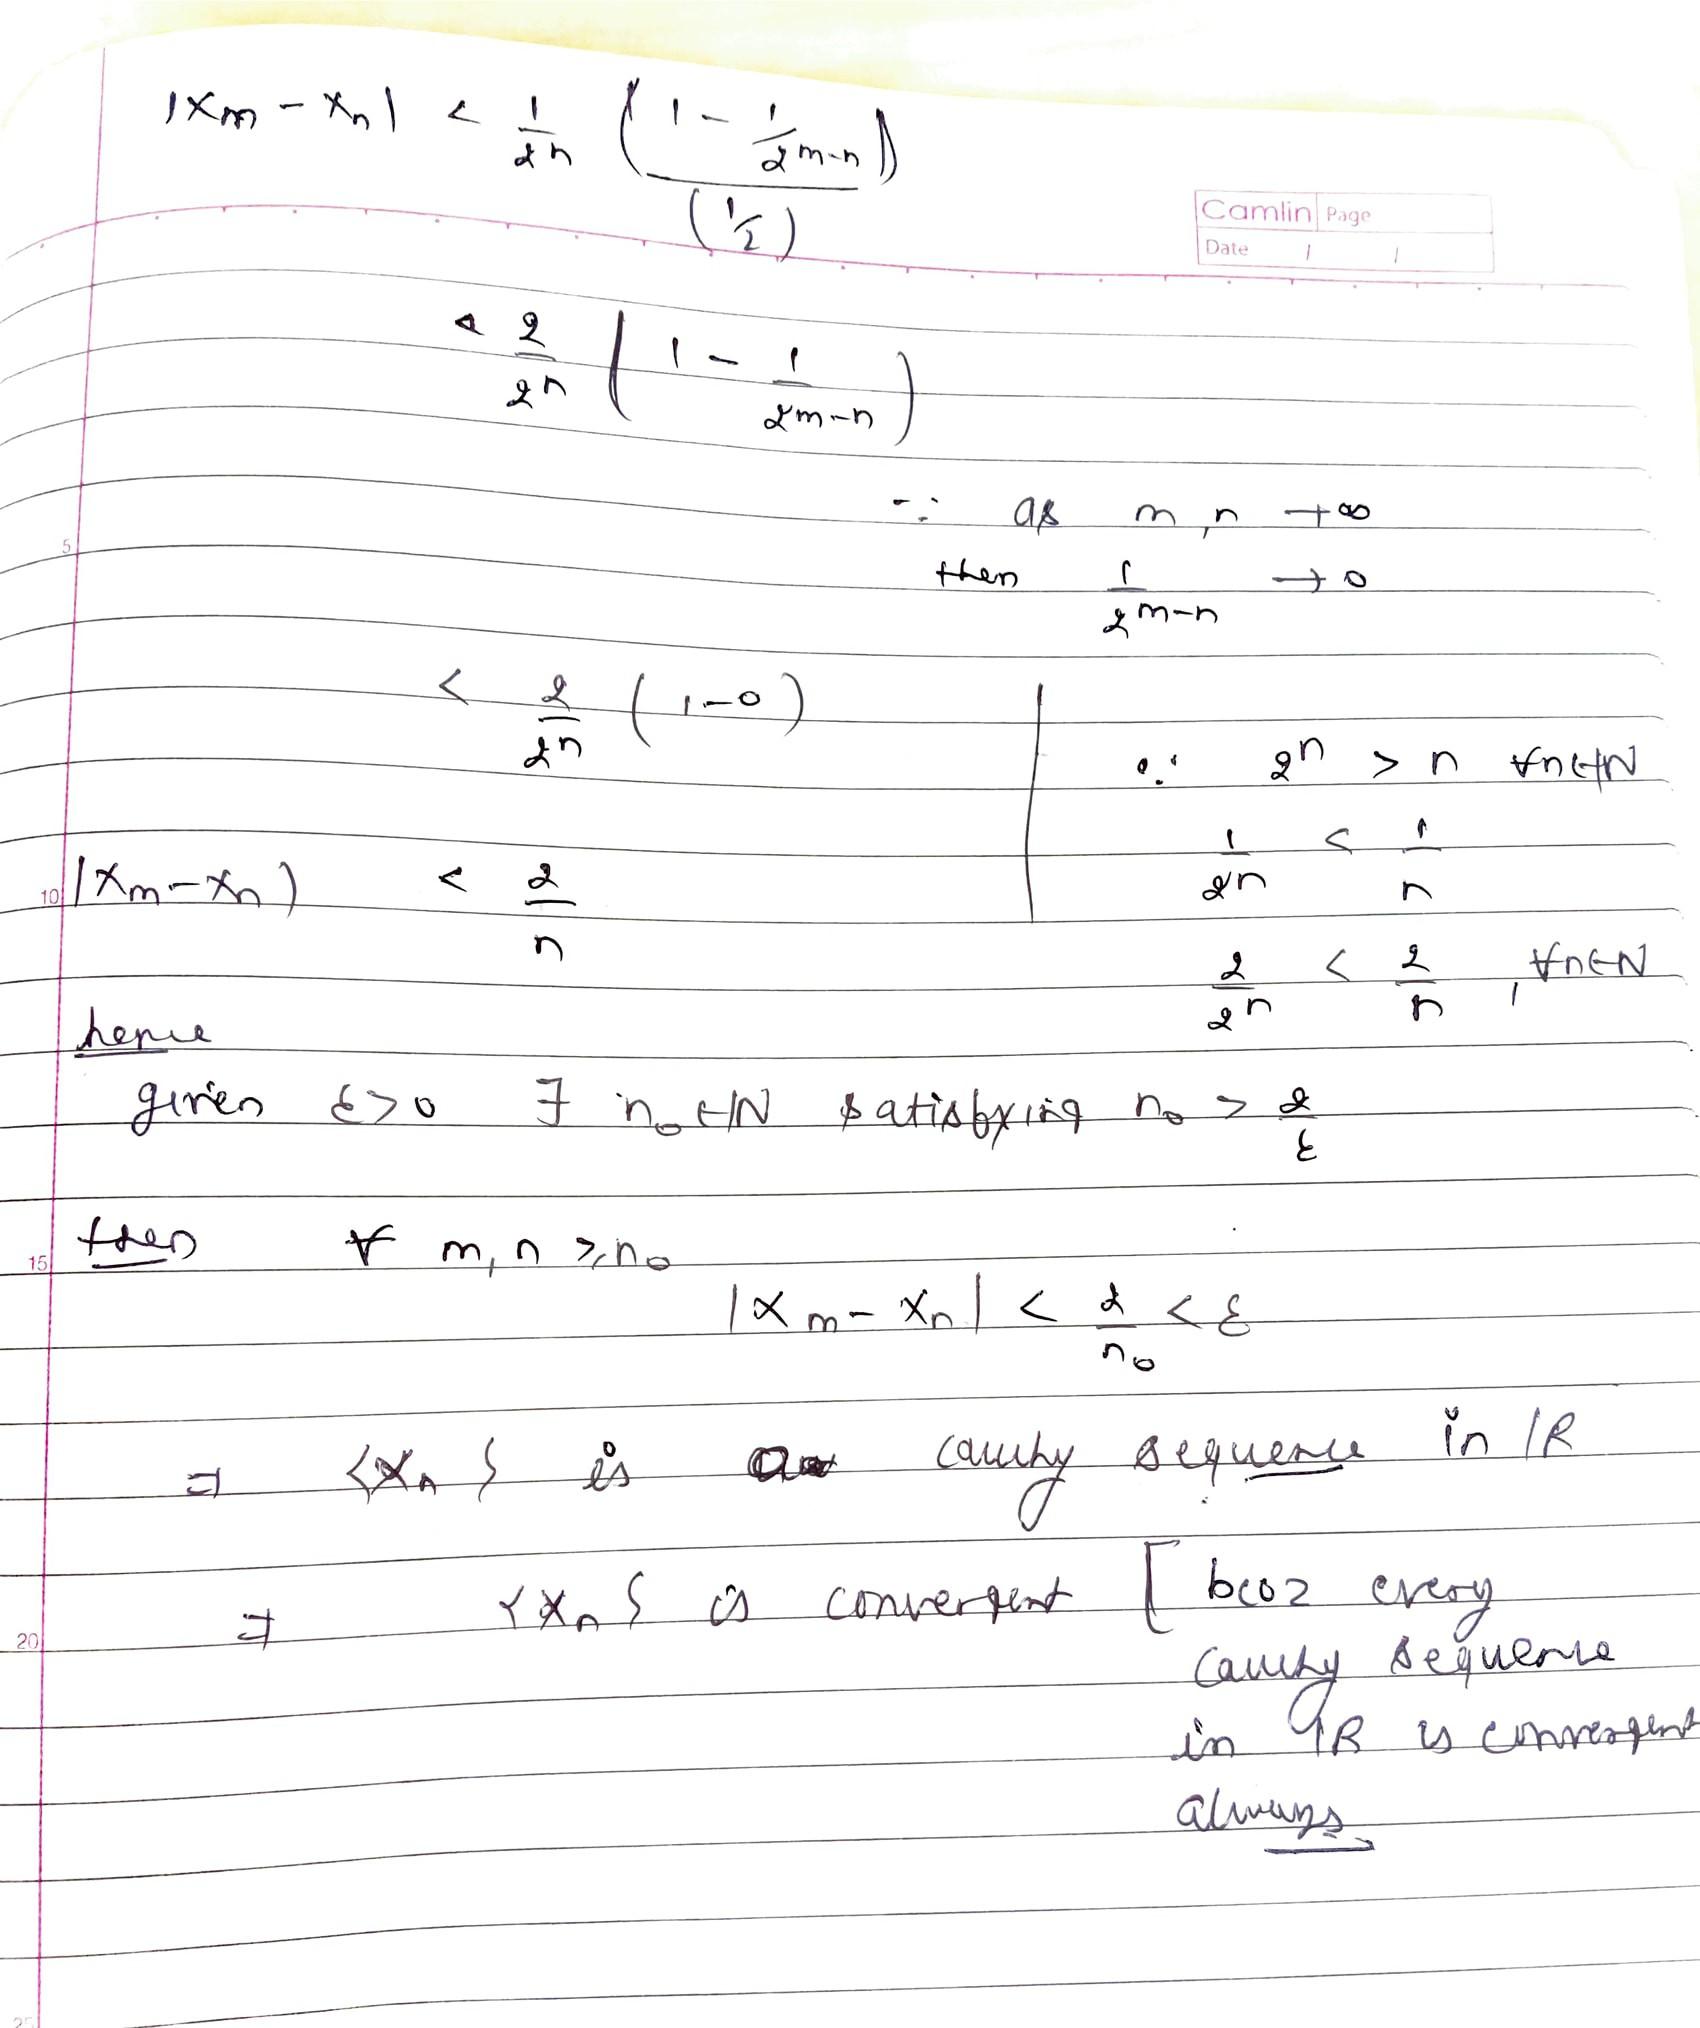 |xm - xn| < 1/2^n (1 - 1/2^m-n)/(1/2)
Camlin Page
Date / /
< 2/2^n (1 - 1/2^m-n)
∵ as m, n → ∞
5
then 1/2^m-n → 0
< 2/2^n (1-0)
∵ 2^n > n ∀n∈N
1/2^n < 1/n
10 |xm - xn) < 2/n
2/2^n < 2/n , ∀n∈N
hence
given ε>0 ∃ n₀∈N satisfying n₀ > 2/ε
then ∀ m, n ≥ n₀
15
|xm - xn| < 2/n₀ < ε
⇒ <xn> is a cauchy sequence in R
⇒ <xn> is convergent [ bcoz every
20
cauchy sequence
in R is convergent
always
25